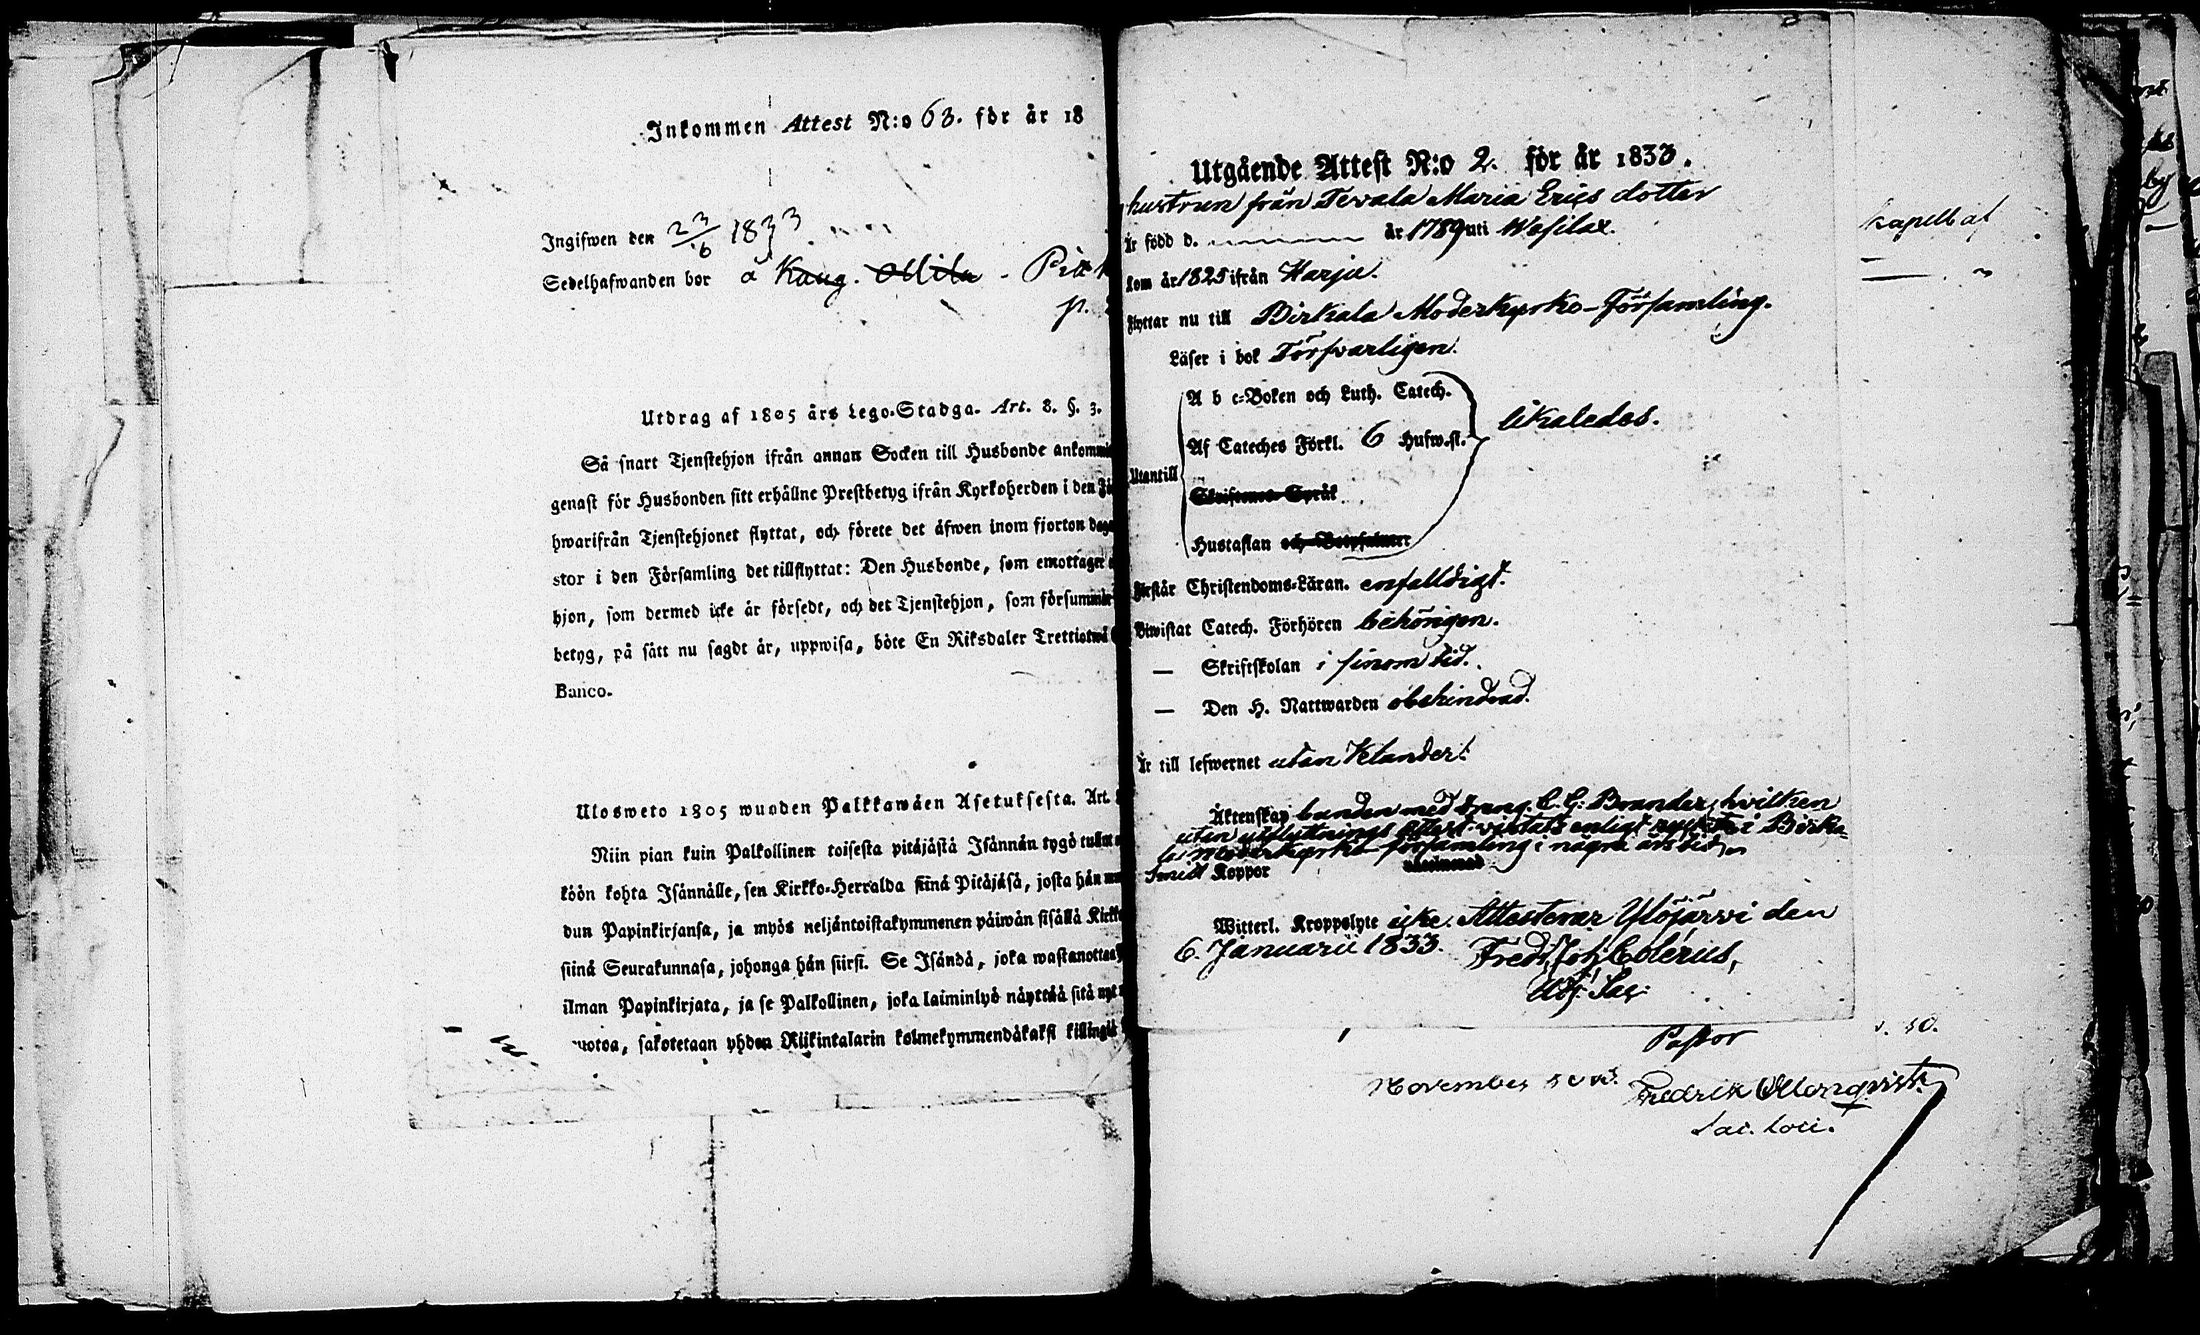 Inkommen Attest N:o 63. för år 18
Ingifwen den 23/6 1833
Sedelhafwanden bor å Kaug. Ollila - Pitk
p.
Utdrag af 1805 års Lego-Stadga. Art. 8. §. 3.
Så snart Tjenstehjon ifrån annan Socken till Husbonde ankommi
genast för Husbonden sitt erhållne Prestbetyg ifrån Kyrkoherden i den Fö
hwarifrån Tjenstehjonet flyttat, och förete det äfwen inom fjorton daga
stor i den Församling det tillflyttat: Den Husbonde, som emottager
hjon, som dermed icke är försedt, och det Tjenstehjon, som försummar
betyg, på sätt nu sagdt är, uppwisa, böte En Riksdaler Trettiotwå
Banco.
Ulosweto 1805 wuoden Palkkawäen Asetuksesta. Art. 8
Niin pian kuin Palkollinen toisesta pitäjästä Isännän tygö tullut
köön kohta Isännälle, sen Kirkko-Herralda siinä Pitäjäsä, josta hän
dun Papinkirjansa, ja myös neljäntoistakymmenen päiwän sisällä Kirkko
siinä Seurakunnasa, johonga hän siirsi. Se Isändä, joka wastanottaa
ilman Papinkirjata, ja se Palkollinen, joka laiminlyö näyttää sitä nyt
wotoa, sakotetaan yhden Riikintalarin kolmekymmendäkaksi killingiä
Utgående Attest N:o 2. för år 1833.
hustrun från Tevala Maria Erics dotter
Är född d. år 1789 uti Messilax.
kom år 1825 ifrån Harju.
flyttar nu till Birkala Moderkyrko-Församling.
Läser i bok Försvarligen.
A b c-Boken och Luth. Catech.
Af Cateches Förkl. 6 Hufw.st. likaledes.
Utantill
Skriftenes Språk
Hustaflan och Botpsalmer
Förstår Christendoms-Läran. enfalldigt.
Biwistat Catech. Förhören behörigen.
— Skriftskolan i sinom tid.
— Den H. Nattwarden obehindrad.
Är till lefwernet utan klander.
Äktenskap bunden med dräng. C. G. Brander, hvilken
utan utflyttnings attest vistats enligt i Birka-
la moderkyrko församling i några års tid
Smitt Koppor
Witterl. Kroppslyte icke. Attesterar Ylöjärvi den
6. Januarii 1833. Fredr. Joh. Colerus,
Adj. Sac.
kapell af
Pastor
November
Fredrik Monqvist
Sac. loci.